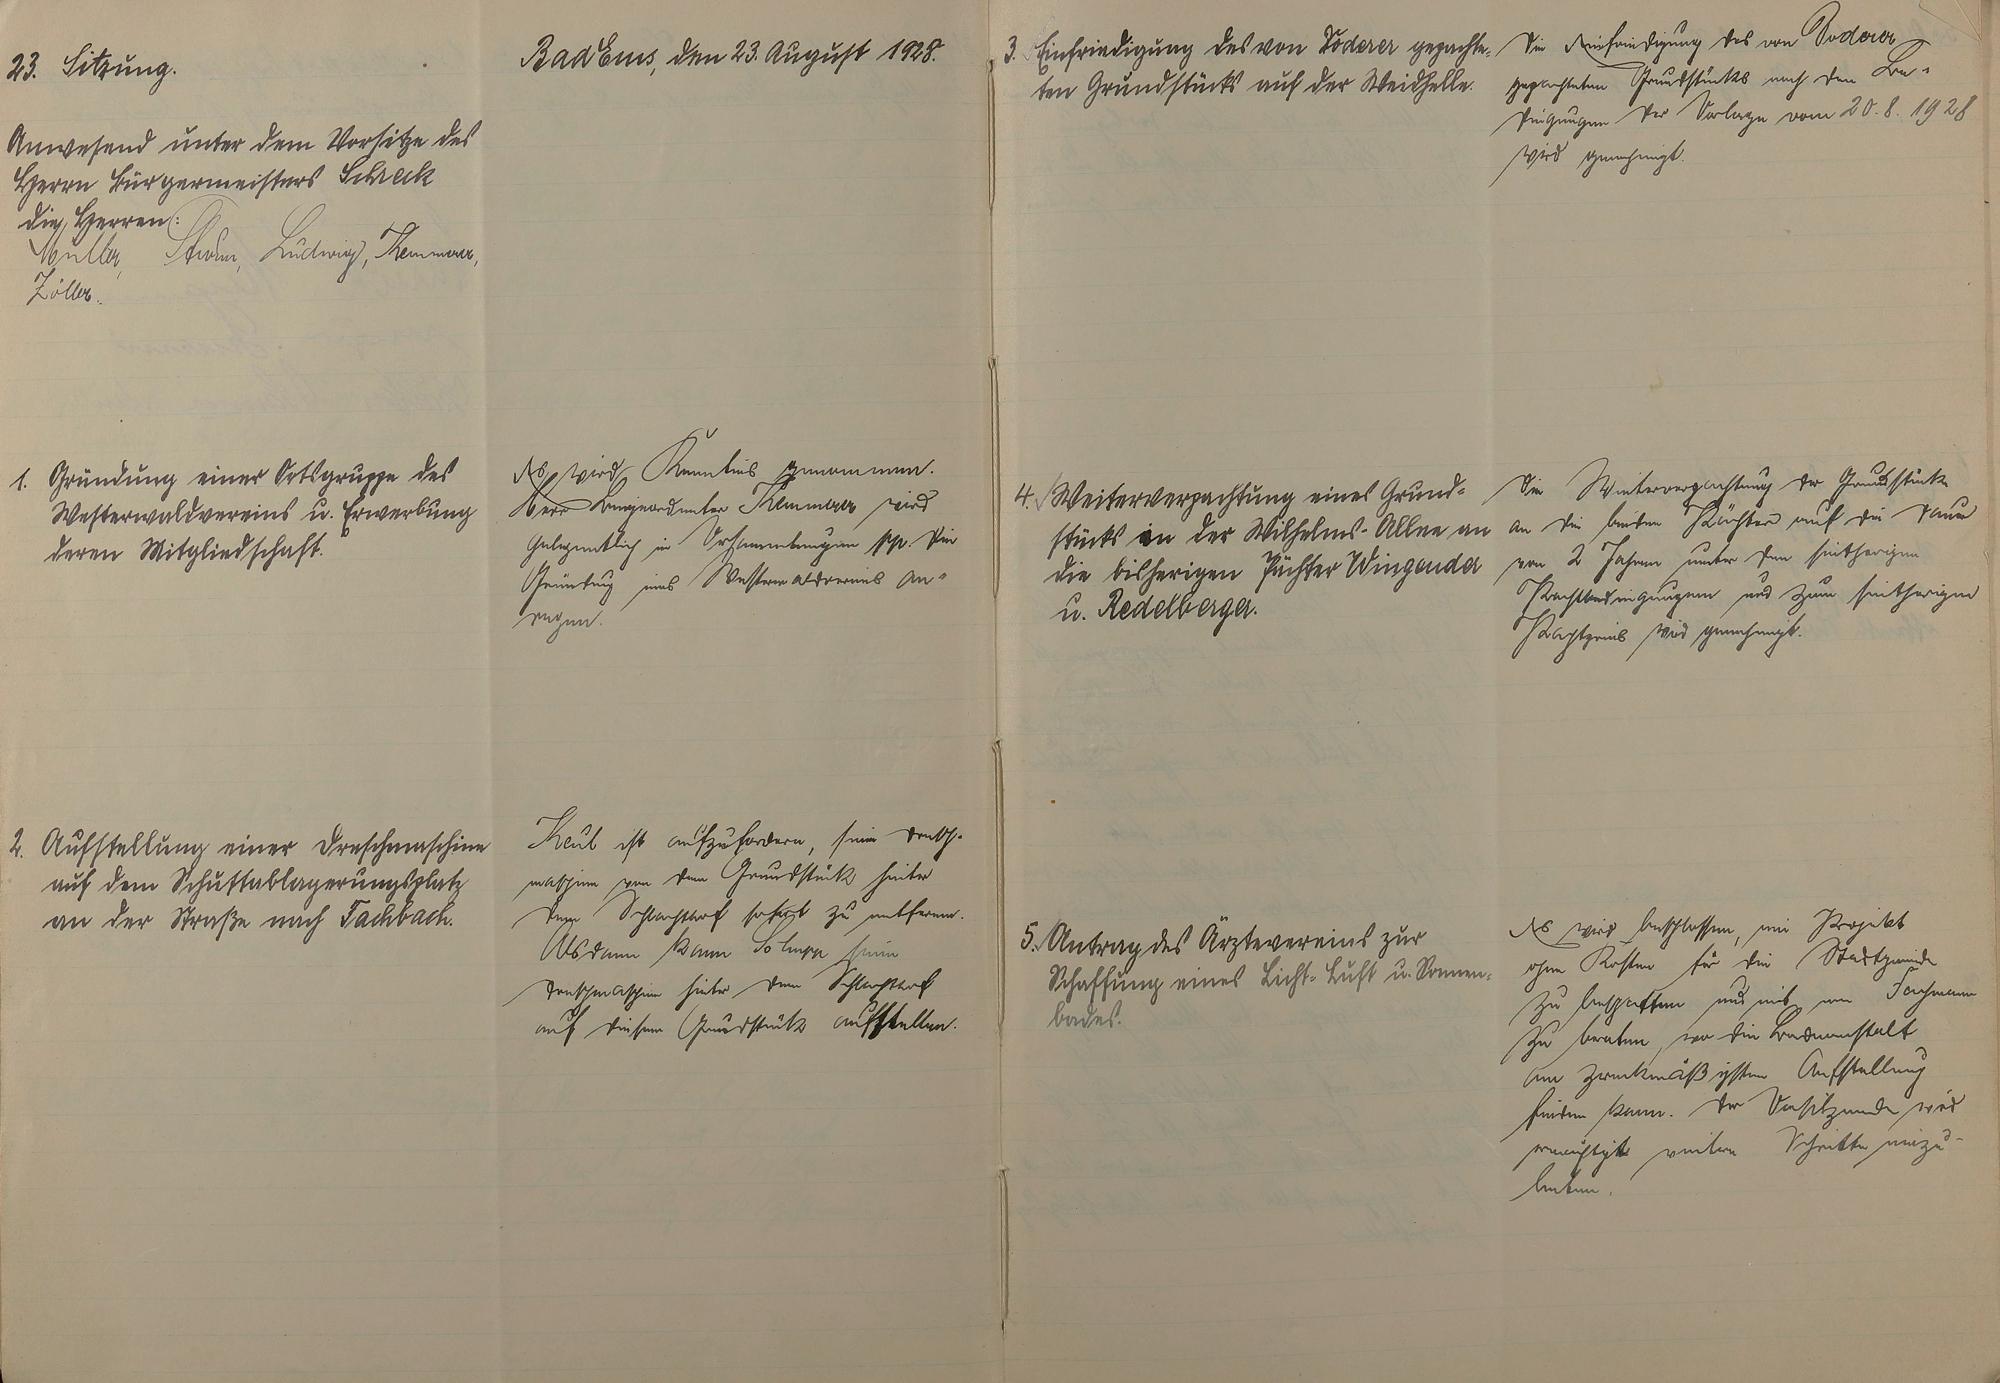 23. Sitzung.
Bad Ems, den 23. August 1928.
Anwesend unter dem Vorsitze des
Herrn Bürgermeisters Schreck
die Herren:
Müller, Sturm, Ludwig, Kemmerer,
Zöller.
1. Gründung einer Ortsgruppe des
Westerwaldvereins u. Erwerbung
deren Mitgliedschaft.
Es wird Kenntnis genommen.
Herr Beigeordneter Kemmerer wird
gelegentlich in Versammlungen pp. die
Gründung eines Westerwaldvereins an-
regen.
2. Aufstellung einer Dreschmaschine
auf dem Schuttablagerungsplatz
an der Straße nach Fachbach.
Keul ist aufzufordern, seine Dresch-
maschine von dem Grundstück hinter
dem Schlachthof sofort zu entfernen.
Alsdann kann seine
Dreschmaschine hinter dem Schlachthof
auf diesem Grundstück aufstellen.
3. Einfriedigung des von Töderer gepachte-
ten Grundstücks auf der Weidhelle.
Die Einfriedigung des von Toderer
gepachteten Grundstücks nach den Be-
dingungen der Vorlage vom 20.8.1928
wird genehmigt.
4. Weiterverpachtung eines Grund-
stücks in der Wilhelms-Allee an
die bisherigen Pächter Wingender
u. Redelberger.
Die Weiterverpachtung der Grundstücke
an die beiden Pächter auf die Dauer
von 2 Jahren unter den seitherigen
Pachtbedingungen und zum seitherigen
Pachtpreis wird genehmigt.
5. Antrag des Ärztevereins zur
Schaffung eines Licht-Luft u. Sonnen-
bades.
Es wird beschlossen, ein Projekt
ohne Kosten für die Stadtgemeinde
zu beschaffen und mit einem Fachmann
zu beraten, wo die Badeanstalt
am zweckmäßigsten Aufstellung
finden kann. Der Vorsitzende wird
ermächtigt weitere Schritte einzu-
leiten.